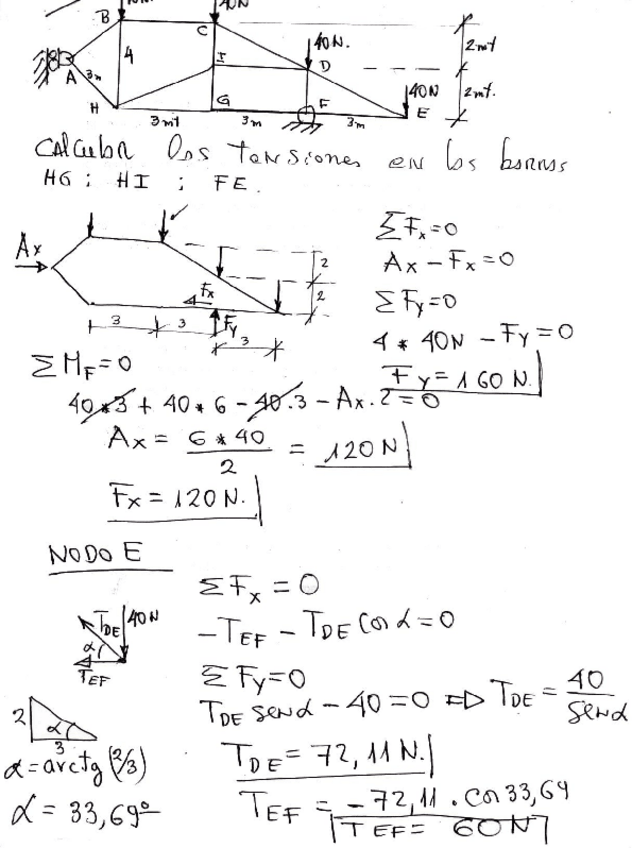 40N
B
C
40N.
2mt
4
I
D
A
3m
40N
2mt.
H
G
F
E
3mt
3m
3m
CALCULAR las tensiones en las barras
HG ; HI ; FE.
Ax
Fx
2
2
3
3
Fy
3
ΣFx=0
Ax - Fx = 0
ΣFy=0
4 * 40N - Fy = 0
Fy = 160 N.
ΣMF=0
40*3 + 40*6 - 40.3 - Ax.2 = 0
Ax = 6*40 / 2 = 120 N
Fx = 120 N.
NODO E
TDE
40N
α
TEF
ΣFx = 0
-TEF - TDE Cos α = 0
ΣFy=0
TDE senα - 40 = 0 ⇒ TDE = 40 / senα
2
α
3
α = arctg (2/3)
α = 33,69º
TDE = 72,11 N.
TEF = -72,11 . Cos 33,69
TEF = 60N